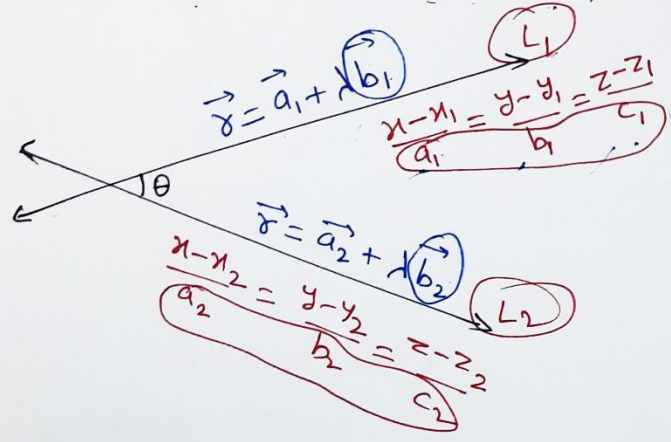 L₁
r⃗ = a⃗₁ + λb⃗₁
(x-x₁)/a₁ = (y-y₁)/b₁ = (z-z₁)/c₁
θ
r⃗ = a⃗₂ + λb⃗₂
(x-x₂)/a₂ = (y-y₂)/b₂ = (z-z₂)/c₂
L₂